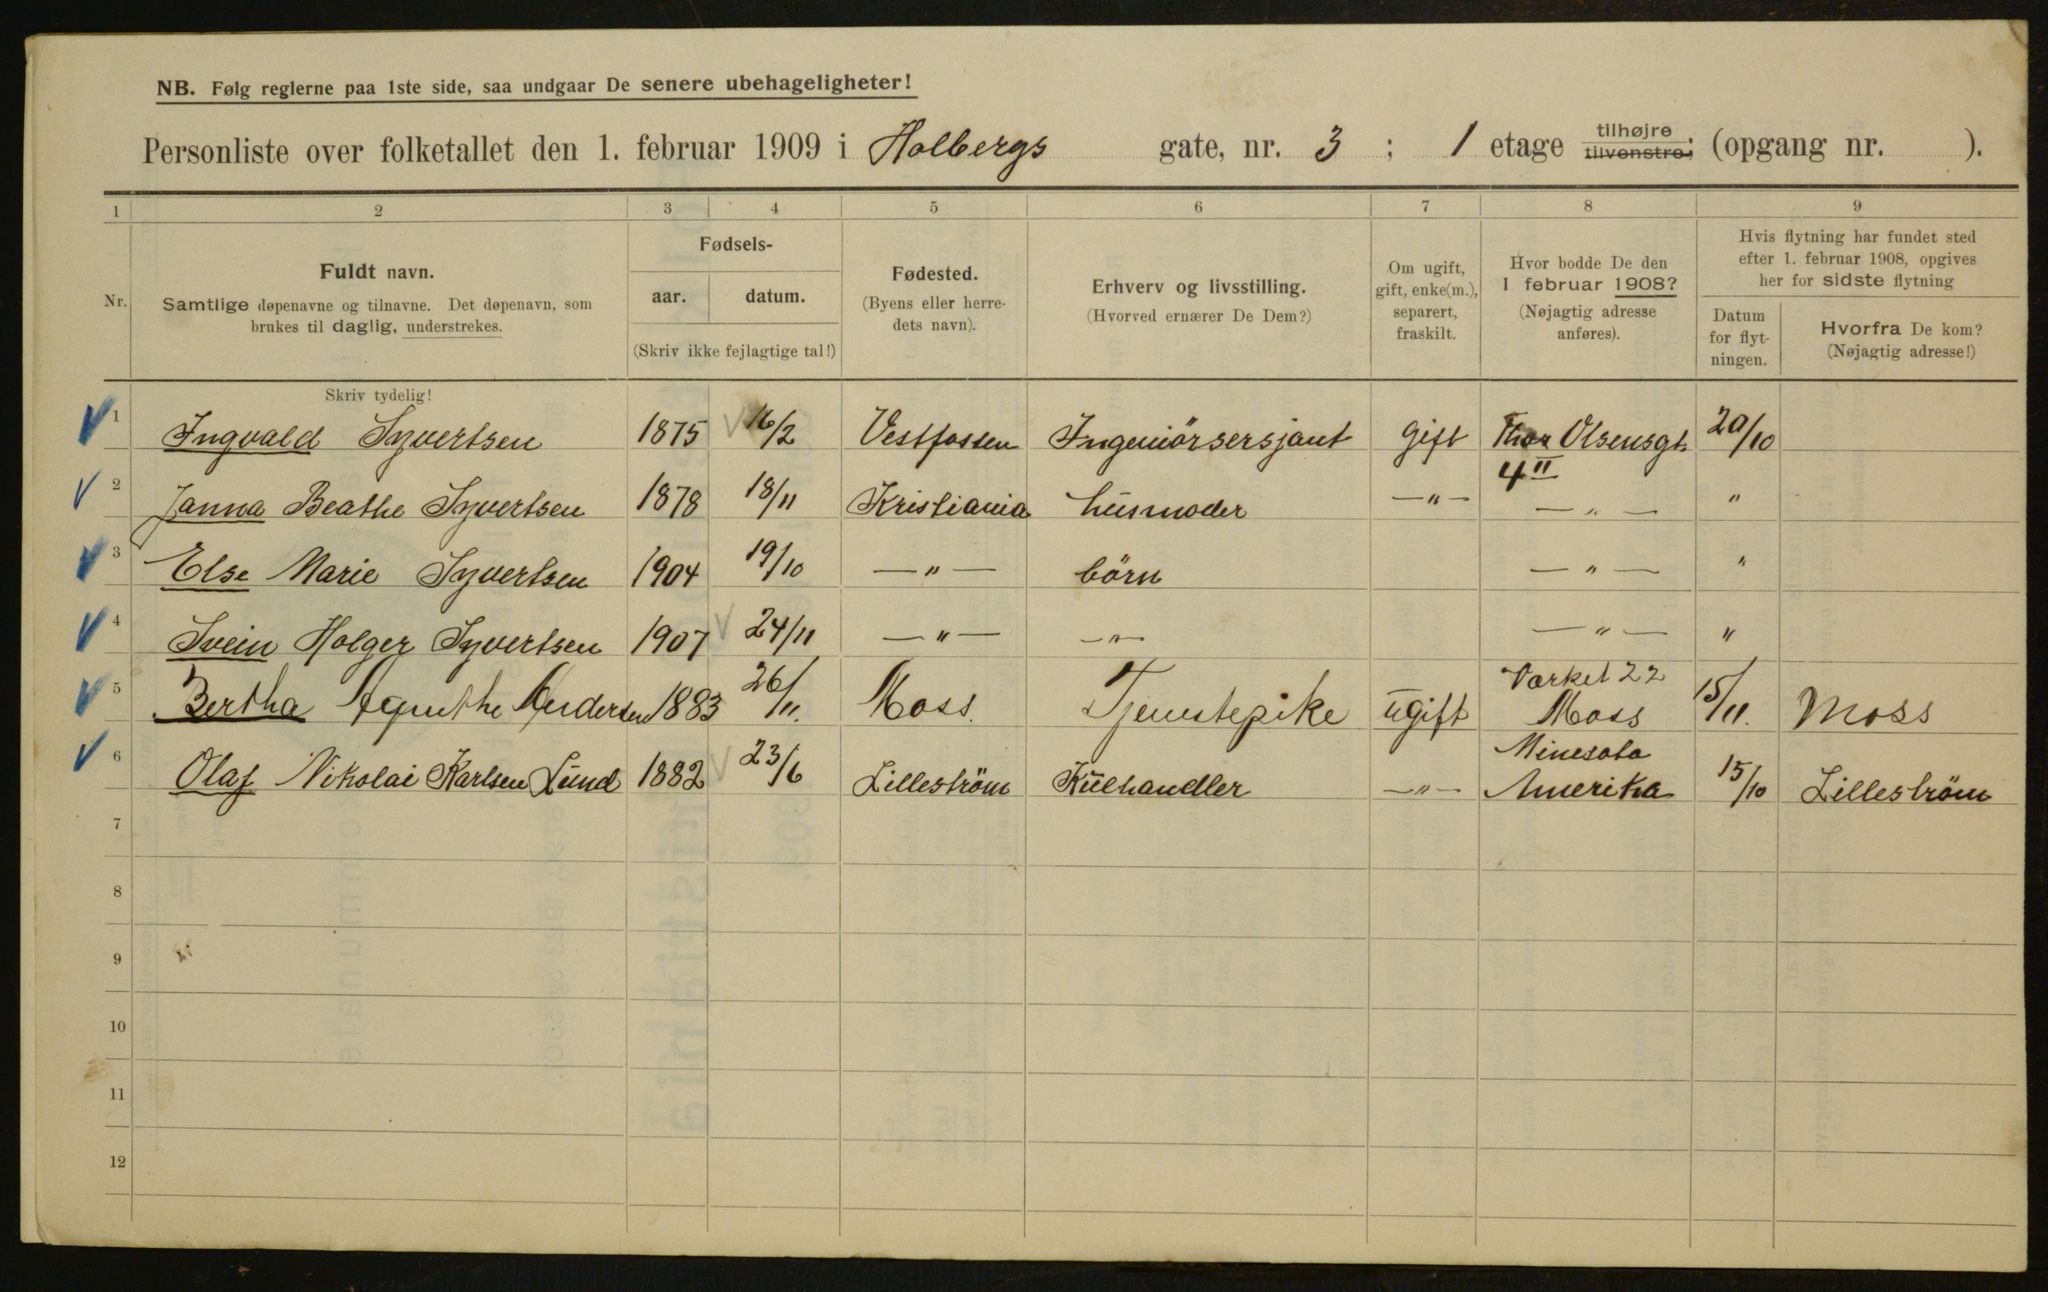 NB. Følg reglerne paa 1ste side, saa undgaar De senere ubehageligheter!
Personliste over folketallet den 1. februar 1909 i Holbergs gate, nr. 3 ; 1 etage tilhøjre tilvenstre; (opgang nr. ).
1 2 3 4 5 6 7 8 9
Nr.
Fuldt navn.
Samtlige døpenavne og tilnavne. Det døpenavn, som
brukes til daglig, understrekes.
Fødsels-
aar. datum.
(Skriv ikke fejlagtige tal!)
Fødested.
(Byens eller herre-
dets navn).
Erhverv og livsstilling.
(Hvorved ernærer De Dem?)
Om ugift,
gift, enke(m.),
separert,
fraskilt.
Hvor bodde De den
1 februar 1908?
(Nøjagtig adresse
anføres).
Hvis flytning har fundet sted
efter 1. februar 1908, opgives
her for sidste flytning
Datum
for flyt-
ningen.
Hvorfra De kom?
(Nøjagtig adresse!)
Skriv tydelig!
1 Ingvald Syvertsen 1875 16/2 Vestfossen Ingeniörsersjant gift Thor Olsensgt. 20/10
4 II
2 Janna Beathe Syvertsen 1878 18/11 Kristiania husmoder —"— —"— "
3 Else Marie Syvertsen 1904 19/10 —"— börn —"— "
4 Svein Holger Syvertsen 1907 24/11 —"— —"— —"— "
Værket 22
5 Bertha Agnethe Andersen 1883 26/11. Moss. Tjenstepike ugift Moss 15/11. Moss
Minesota
6 Olaf Nikolai Karlsen Lund 1882 23/6 Lilleström Kulhandler —"— Amerika 15/10 Lilleström
7
8
9
10
11
12